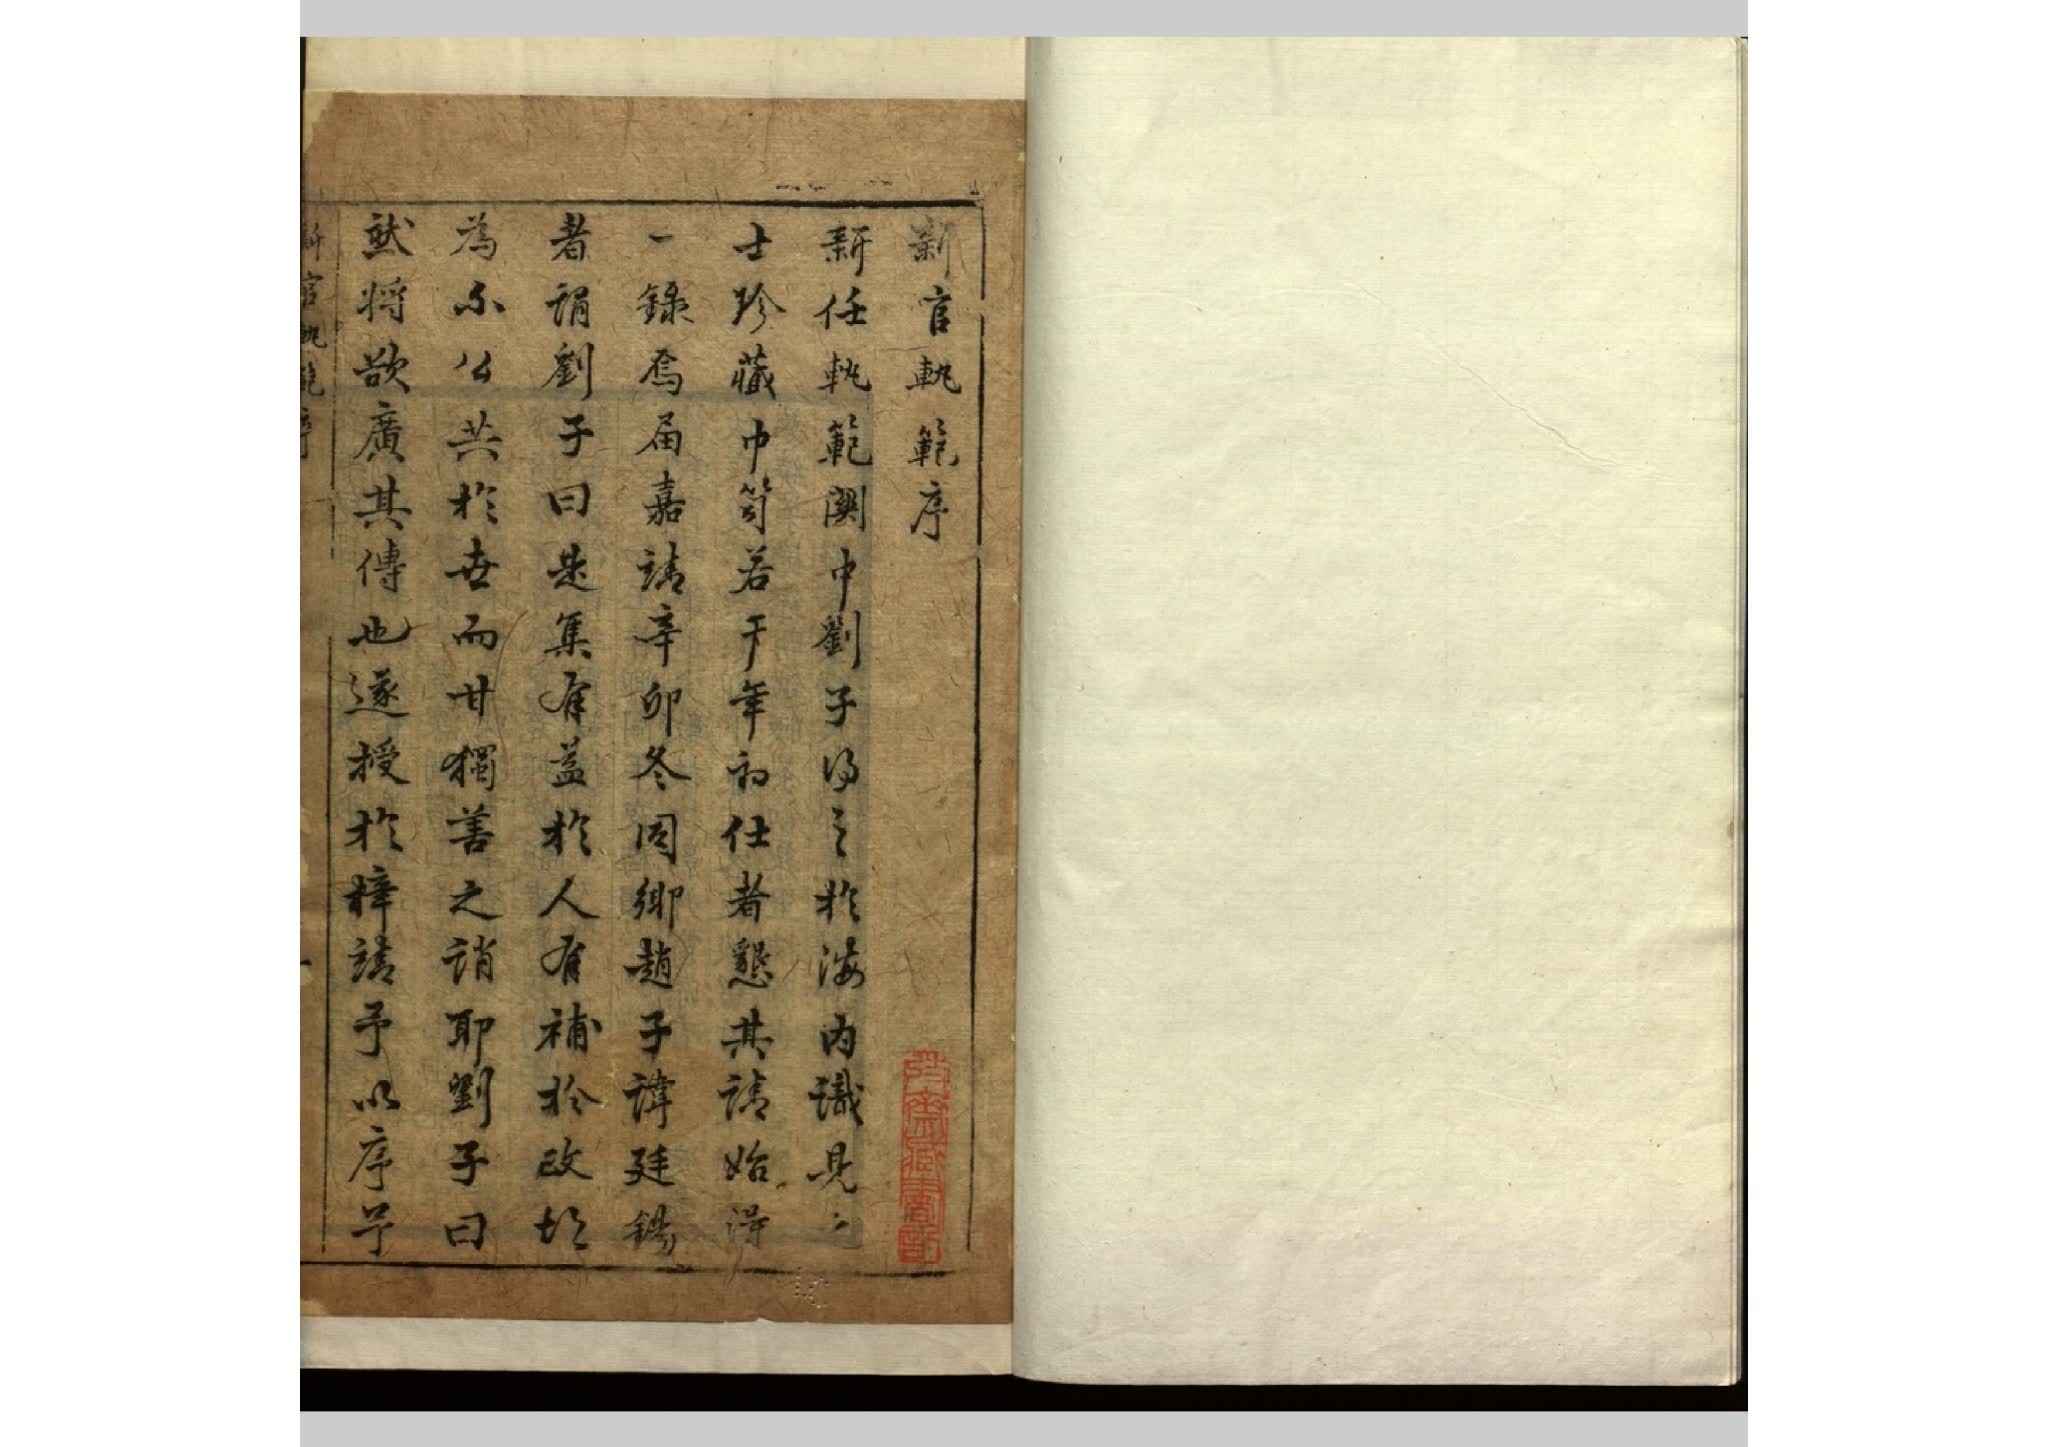 新官軌範序
新任軌範関中劉子得之於海内識見之
士珍藏巾笥若干年初仕者懇其請始得
一錄焉届嘉靖辛卯冬同鄉趙子諱廷錫
者謂劉子曰是集有益於人有補於政胡
為不公共於世而甘獨善之誚耶劉子曰
然將欲廣其傳也遂授於梓請予以序予
新官軌範序
一